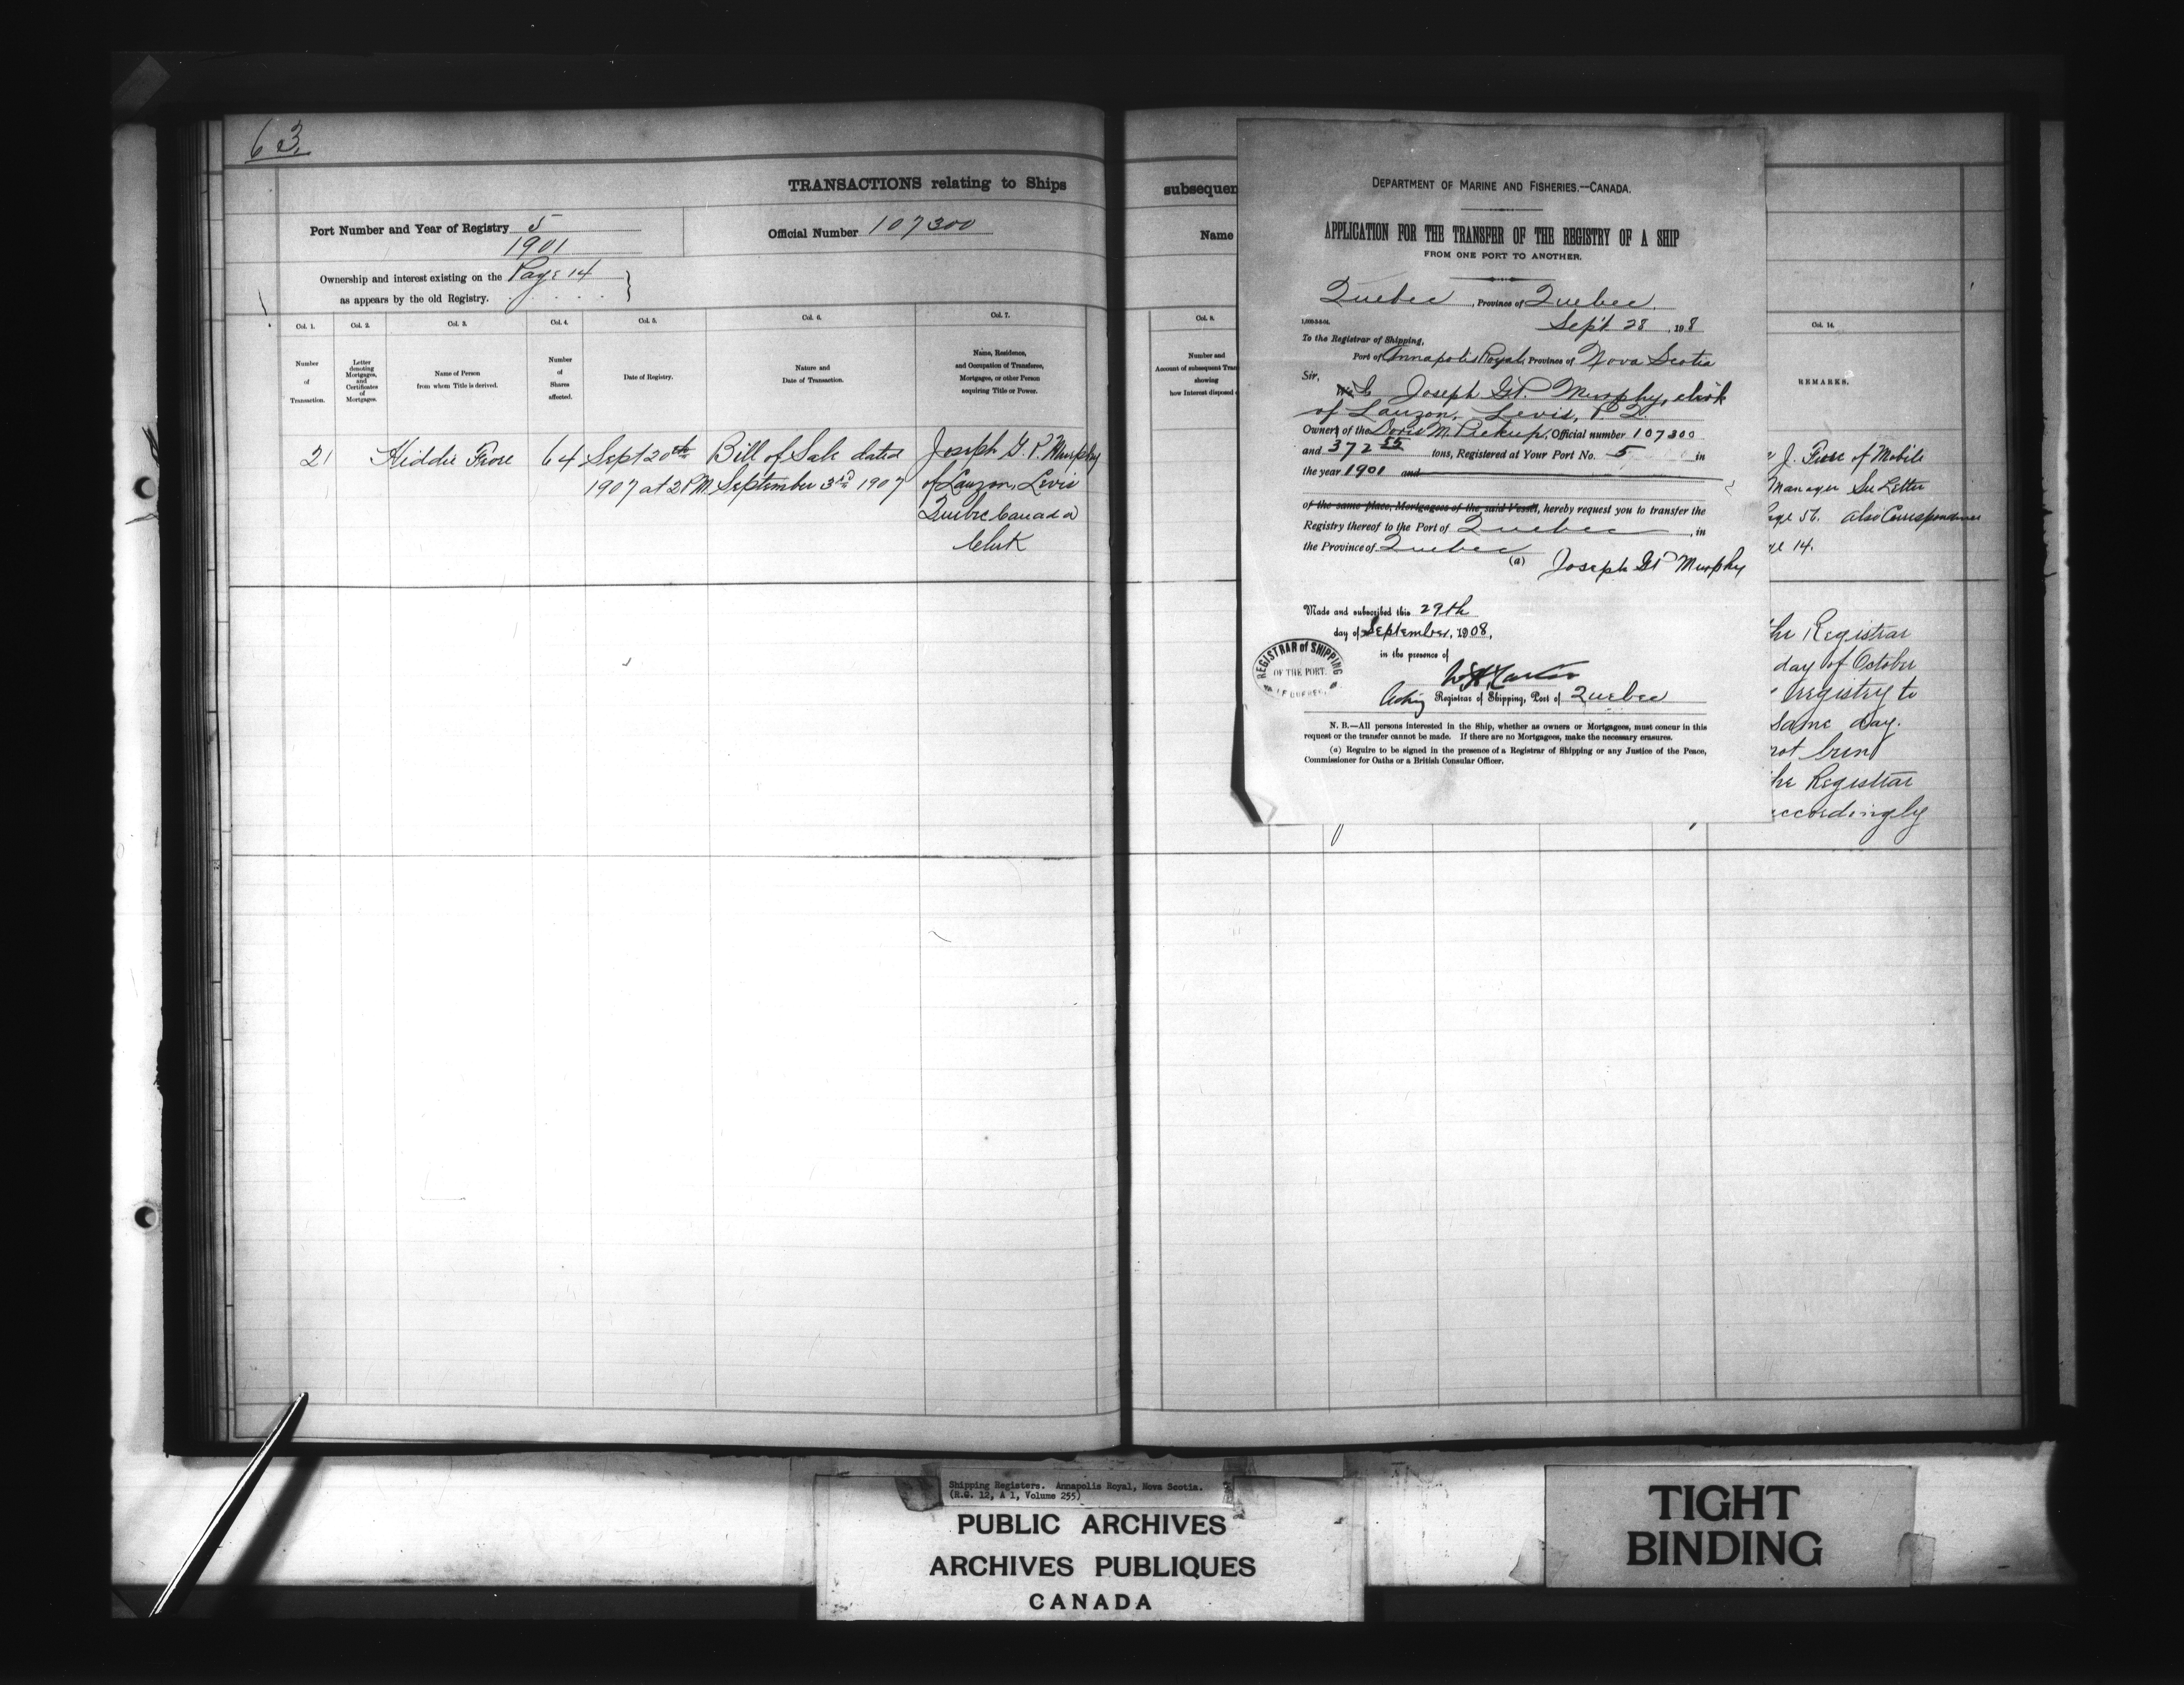 63.
TRANSACTIONS relating to Ships
Port Number and Year of Registry 5
1901
Official Number 107300
Ownership and interest existing on the Page 14
as appears by the old Registry.
Col. 1. Col. 2. Col. 3. Col. 4. Col. 5. Col. 6. Col. 7.
Number of Transaction.
Letter denoting Mortgages, and Certificates of Mortgages.
Name of Person from whom Title is derived.
Number of Shares affected.
Date of Registry.
Nature and Date of Transaction.
Name, Residence, and Occupation of Transferee, Mortgagee, or other Person acquiring Title or Power.
21 Kiddie Fiore 64 Sept 20th Bill of Sale dated Joseph G. P. Murphy
1907 at 2 PM. September 3rd 1907 of Lauzon, Levis
Quebec Canada
Clerk
subsequen
Name
Col. 8.
Number and
Account of subsequent Tran
showing
how Interest disposed
DEPARTMENT OF MARINE AND FISHERIES.—CANADA.
APPLICATION FOR THE TRANSFER OF THE REGISTRY OF A SHIP
FROM ONE PORT TO ANOTHER.
Quebec, Province of Quebec.
Sept 28, 198
To the Registrar of Shipping,
Port of Annapolis Royal, Province of Nova Scotia
Sir,
Joseph G P. Murphy, clerk
of Lauzon, Levis, P Q.
Owner of the Doris M. Pickup, Official number 107300
and 372 55 tons, Registered at Your Port No. 5 in
the year 1901 and
of the same place, Mortgagees of the said Vessel, hereby request you to transfer the
Registry thereof to the Port of Quebec, in
the Province of Quebec
(a) Joseph G P Murphy
Made and subscribed this 29th
day of September, 1908,
in the presence of
Acting Registrar of Shipping, Port of Quebec
REGISTRAR of SHIPPING
OF THE PORT.
OF QUEBEC.
N. B.—All persons interested in the Ship, whether as owners or Mortgagees, must concur in this
request or the transfer cannot be made. If there are no Mortgagees, make the necessary erasures.
(a) Require to be signed in the presence of a Registrar of Shipping or any Justice of the Peace,
Commissioner for Oaths or a British Consular Officer.
Col. 14.
REMARKS.
J. Fiore of Mobile
Manager See Letter
age 56. also Correspondence
14.
the Registrar
day of October
registry to
same day.
not been
the Registrar
accordingly
Shipping Registers. Annapolis Royal, Nova Scotia.
(R.G. 12, A 1, Volume 255)
PUBLIC ARCHIVES
ARCHIVES PUBLIQUES
CANADA
TIGHT
BINDING